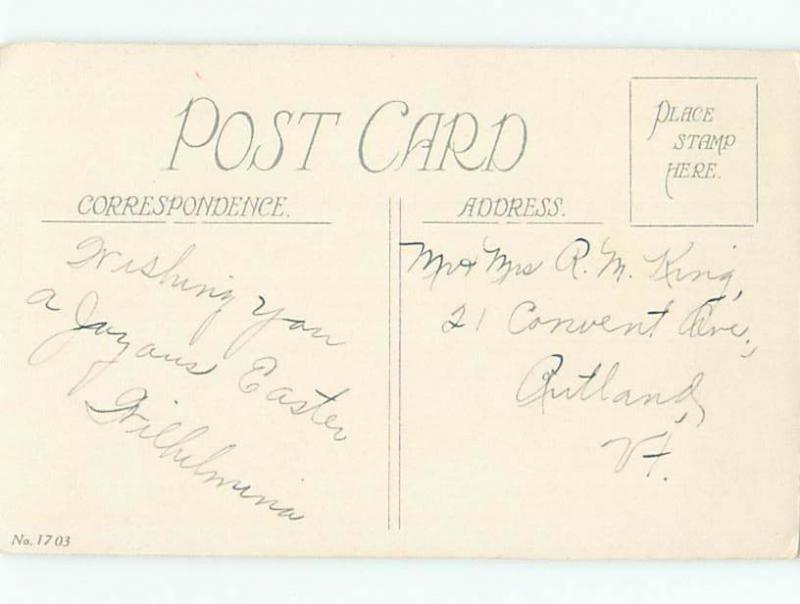 POST CARD
PLACE
STAMP
HERE.
CORRESPONDENCE.
Wishing you
a Joyous Easter
Wilhelmina
ADDRESS.
Mr & Mrs R. M. King,
21 Convent Ave.,
Rutland,
Vt.
No. 1703